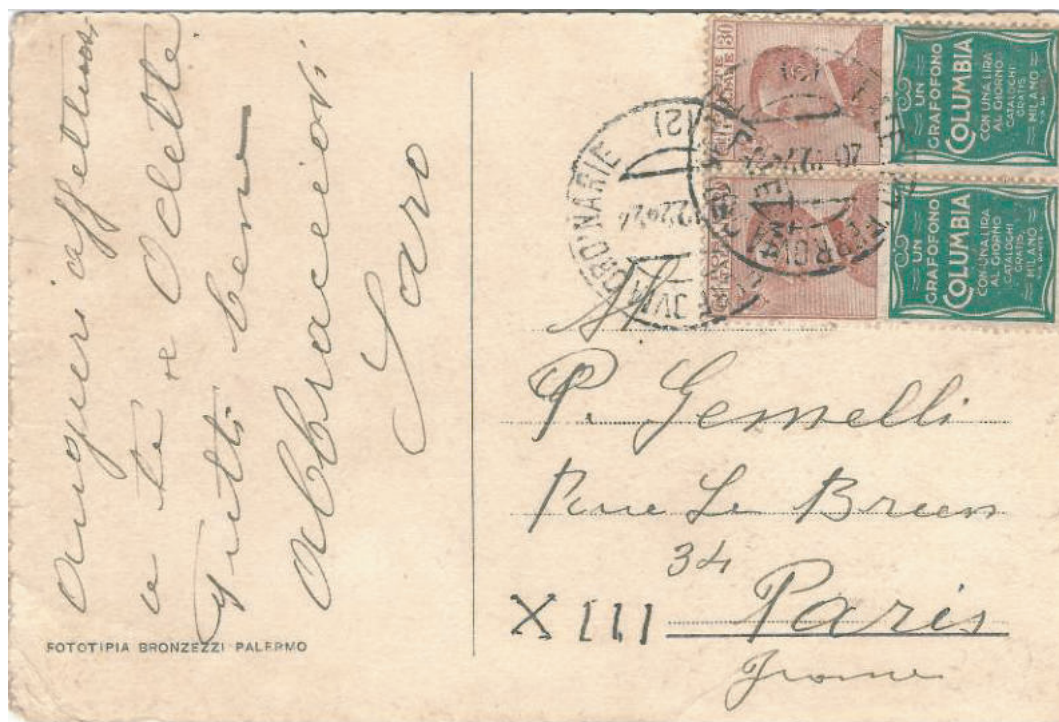 auguri affettuosi
a te e Odette
Tutti bene
Abbraccioni
Saro
FOTOTIPIA BRONZEZZI PALERMO
30
UN
GRAFOFONO
COLUMBIA
CON UNA LIRA
AL GIORNO
CATALOGHI
GRATIS
MILANO
UN
GRAFOFONO
COLUMBIA
CON UNA LIRA
AL GIORNO
CATALOGHI
GRATIS
MILANO
ORDINARIE
(2)
P. Gemelli
Rue Le Brun
34
XIII Paris
France